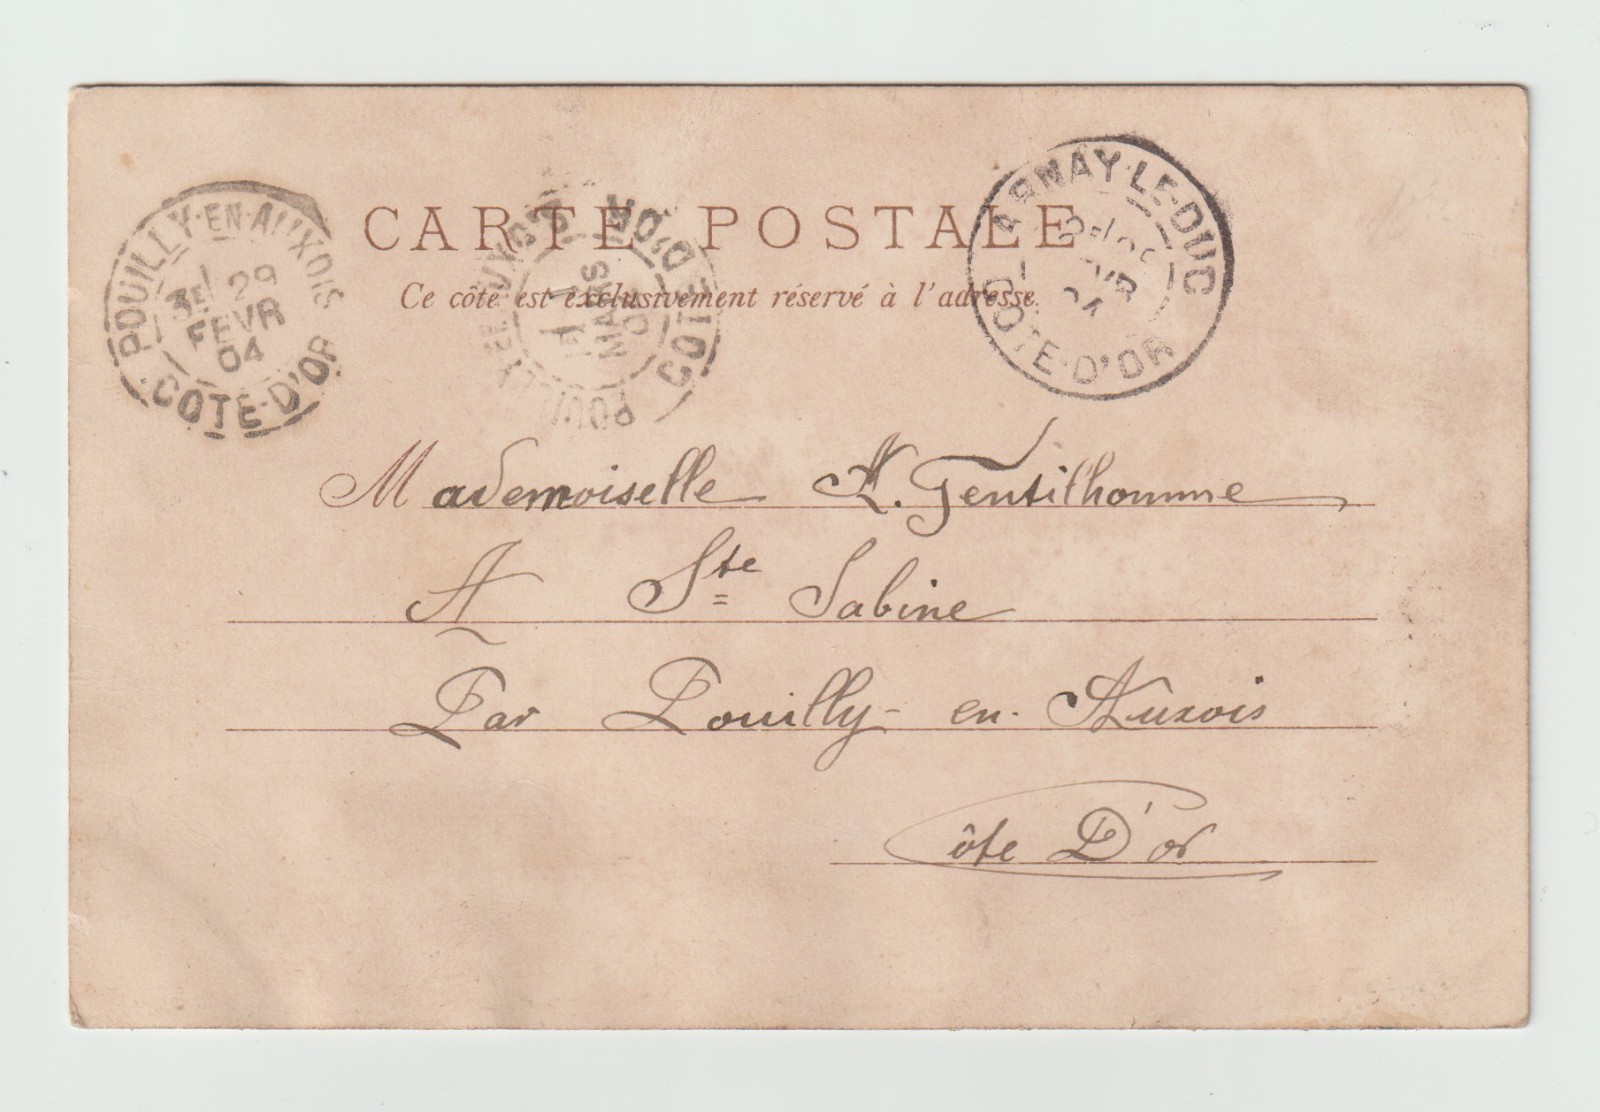 CARTE POSTALE
Ce côté est exclusivement réservé à l'adresse.
POUILLY-EN-AUXOIS
3E 29
FEVR
04
CÔTE-D'OR
POUILLY-EN-AUXOIS
1E 1
MARS
04
CÔTE-D'OR
ARNAY-LE-DUC
FEVR
04
CÔTE-D'OR
Mademoiselle A. Gentilhomme
A Ste Sabine
Par Pouilly-en-Auxois
Côte D'or